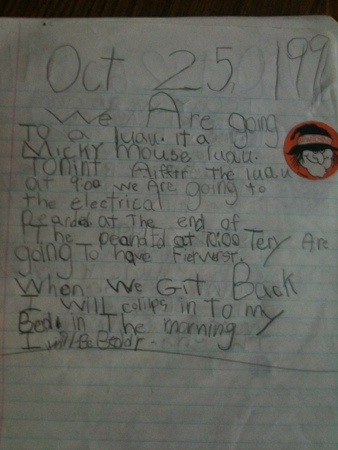 Oct 25, 199
We Are going
To a luau. it a
Micky Mouse luau.
Tonint Aiftr The luau
at 9:00 we Are going to
the electrical
at The end of
The at 10:00 Tery Are
going To have
When We Git Back
I will collips in To my
Bed. in The morning
I will Be